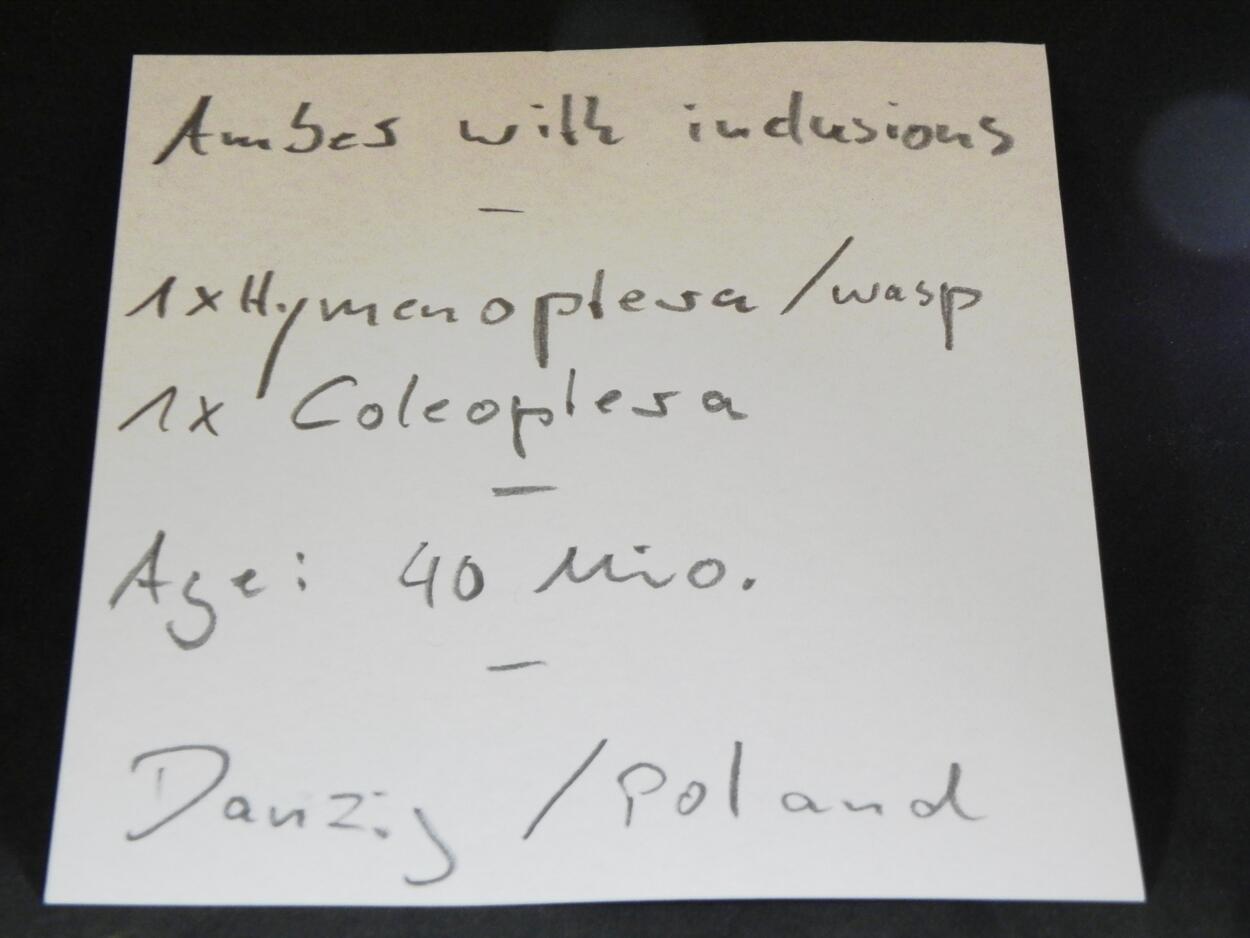 Amber with inclusions
–
1x Hymenoptera / wasp
1x Coleoptera
–
Age: 40 Mio.
–
Danzig / Poland